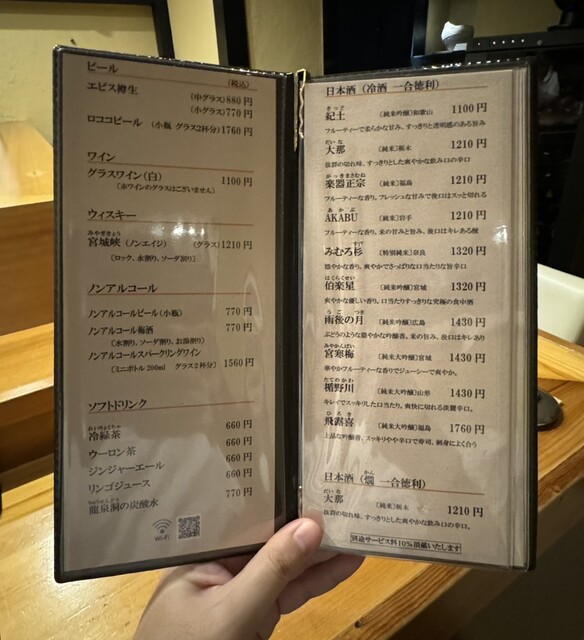 ビール
(税込)
エビス樽生
(中グラス) 880円
(小グラス) 770円
ロココビール (小瓶 グラス2杯分) 1760円
ワイン
グラスワイン(白) 1100円
(赤ワインのグラスはございません)
ウィスキー
みやぎきょう
宮城峡 (ノンエイジ) (グラス) 1210円
〔ロック、水割り、ソーダ割り〕
ノンアルコール
ノンアルコールビール(小瓶) 770円
ノンアルコール梅酒 770円
〔水割り、ソーダ割り、お湯割り〕
ノンアルコールスパークリングワイン
〔ミニボトル 200ml グラス2杯分〕 1560円
ソフトドリンク
冷緑茶 660円
ウーロン茶 660円
ジンジャーエール 660円
リンゴジュース 660円
龍泉洞の炭酸水 770円
Wi-Fi
日本酒 (冷酒 一合徳利)
きっど
紀土 〔純米吟醸〕和歌山 1100円
フルーティーで柔らかな甘み、すっきりと透明感のある旨み
だいな
大那 〔純米〕栃木 1210円
抜群の切れ味、すっきりとした爽やかな飲み口の辛口
がっきまさむね
楽器正宗 〔純米〕福島 1210円
フルーティーな香り、フレッシュな甘みで後口はスッと切れる
あかぶ
AKABU 〔純米〕岩手 1210円
フルーティーな香り、米の甘みと旨み、後口はキレある酸
すぎ
みむろ杉 〔特別純米〕奈良 1320円
穏やかな香り、爽やかでさっぱりな口当たりな旨辛口
はくらくせい
伯楽星 〔純米吟醸〕宮城 1320円
爽やかな優しい香り、口当たりすっきりな究極の食中酒
うご つき
雨後の月 〔純米吟醸〕広島 1430円
ぶどうのような穏やかな吟醸香、米の旨み、後口はキレあり
みやかんばい
宮寒梅 〔純米大吟醸〕宮城 1430円
華やかフルーティーな香りでジューシーで爽やか。
たてのかわ
楯野川 〔純米大吟醸〕山形 1430円
キレイでスッキリした口当たり、爽快に切れる淡麗辛口。
ひろき
飛露喜 〔純米大吟醸〕福島 1760円
上品な吟醸香、スッキリやや辛口で寿司、刺身によく合う
かん
日本酒 (燗 一合徳利)
だいな
大那 〔純米〕栃木 1210円
抜群の切れ味、すっきりとした爽やかな飲み口の辛口。
別途サービス料10%頂戴いたします